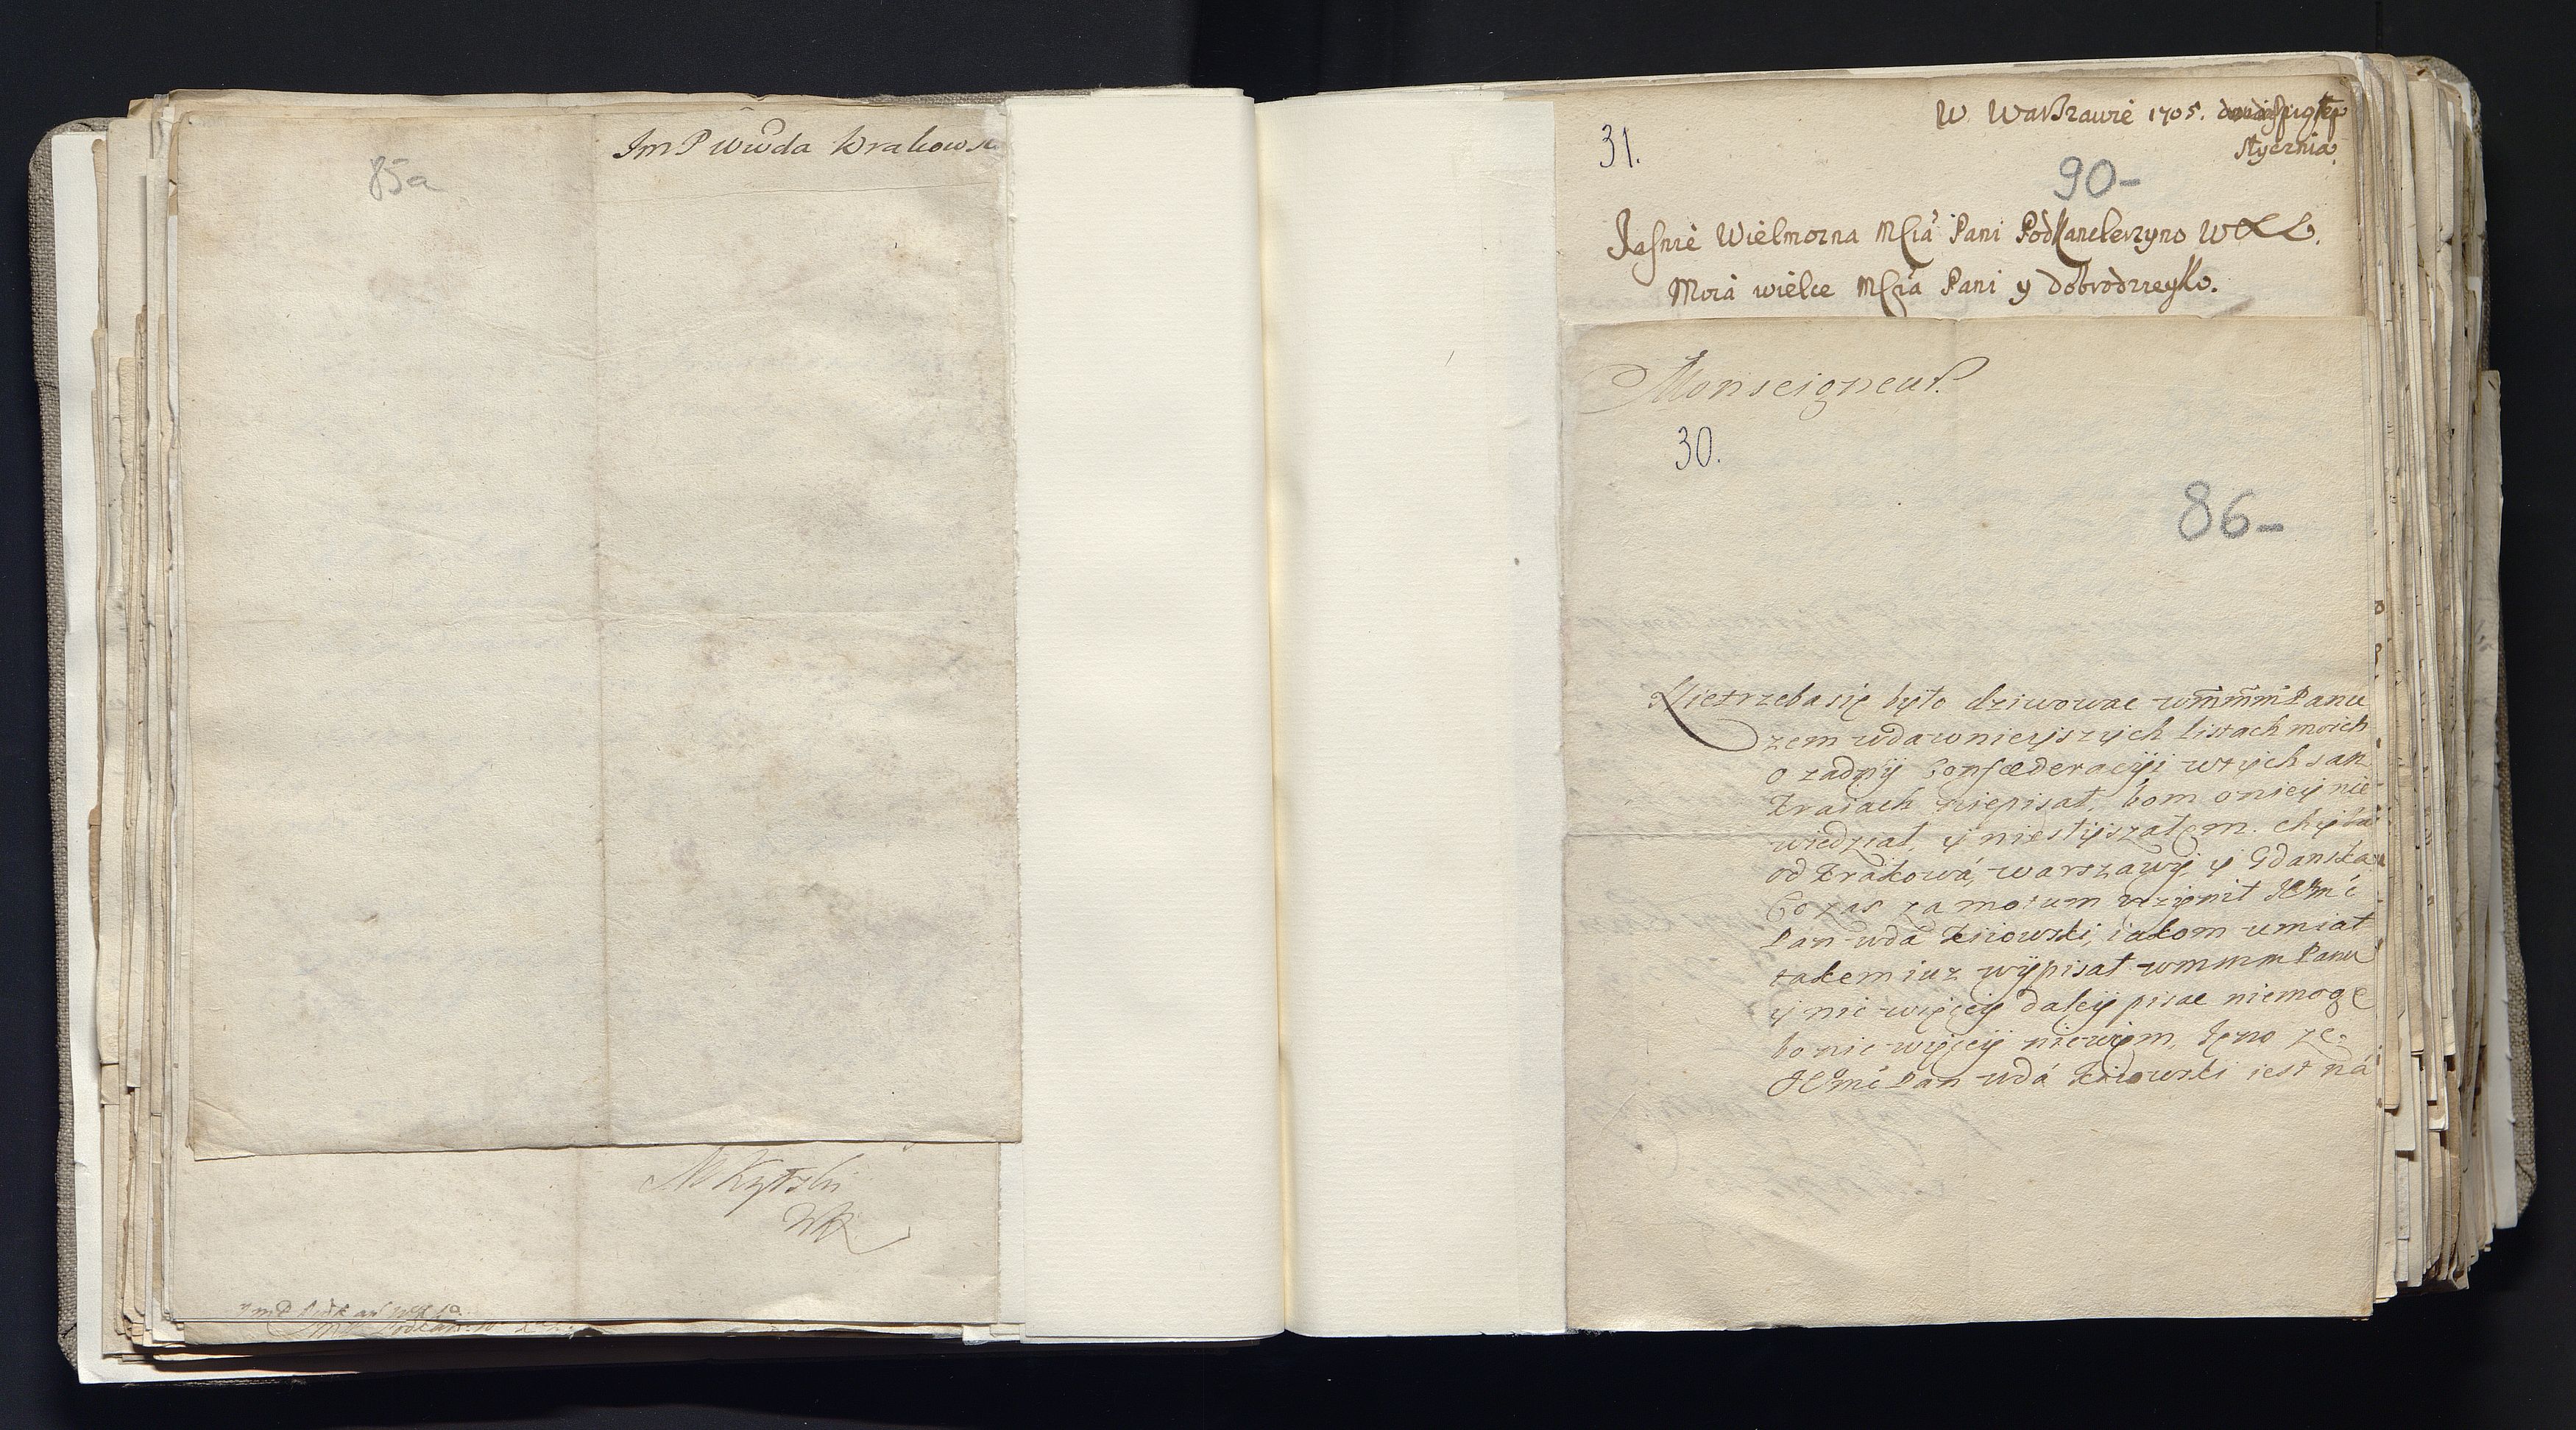 85a
Im P wwda Krakows
M Kątski
WK
31.
W Warszawie 1705. dnia
stycznia.
90-
Jasnie Wielmozna Mcia Pani Podkanclerzyno WXL.
Moia wielce Mcia Pani y Dobrodzieyko.
Monseigneur.
30.
86-
Nietrzeba się było dziwowac wmmm Panu
zem wdawnieyszych listach moich
o zadnÿ Confæderacÿi wtÿch san
Kraiach niepisał, bom oniey nie
wiedział, ÿ niesłÿszałem. chÿba
od Krakowá, warszawÿ, ÿ Gdanska
Co zas za motum uczÿnił JEmć
Pan wdá Kiiowski, iakom umiał
takem iuz wÿpisał wmmm Panu
ÿ nic więcey daleÿ pisac niemogę
bo nic więcÿ niewiem, Jeno ze
JEmć Pan wdá Kiiowski iest ná